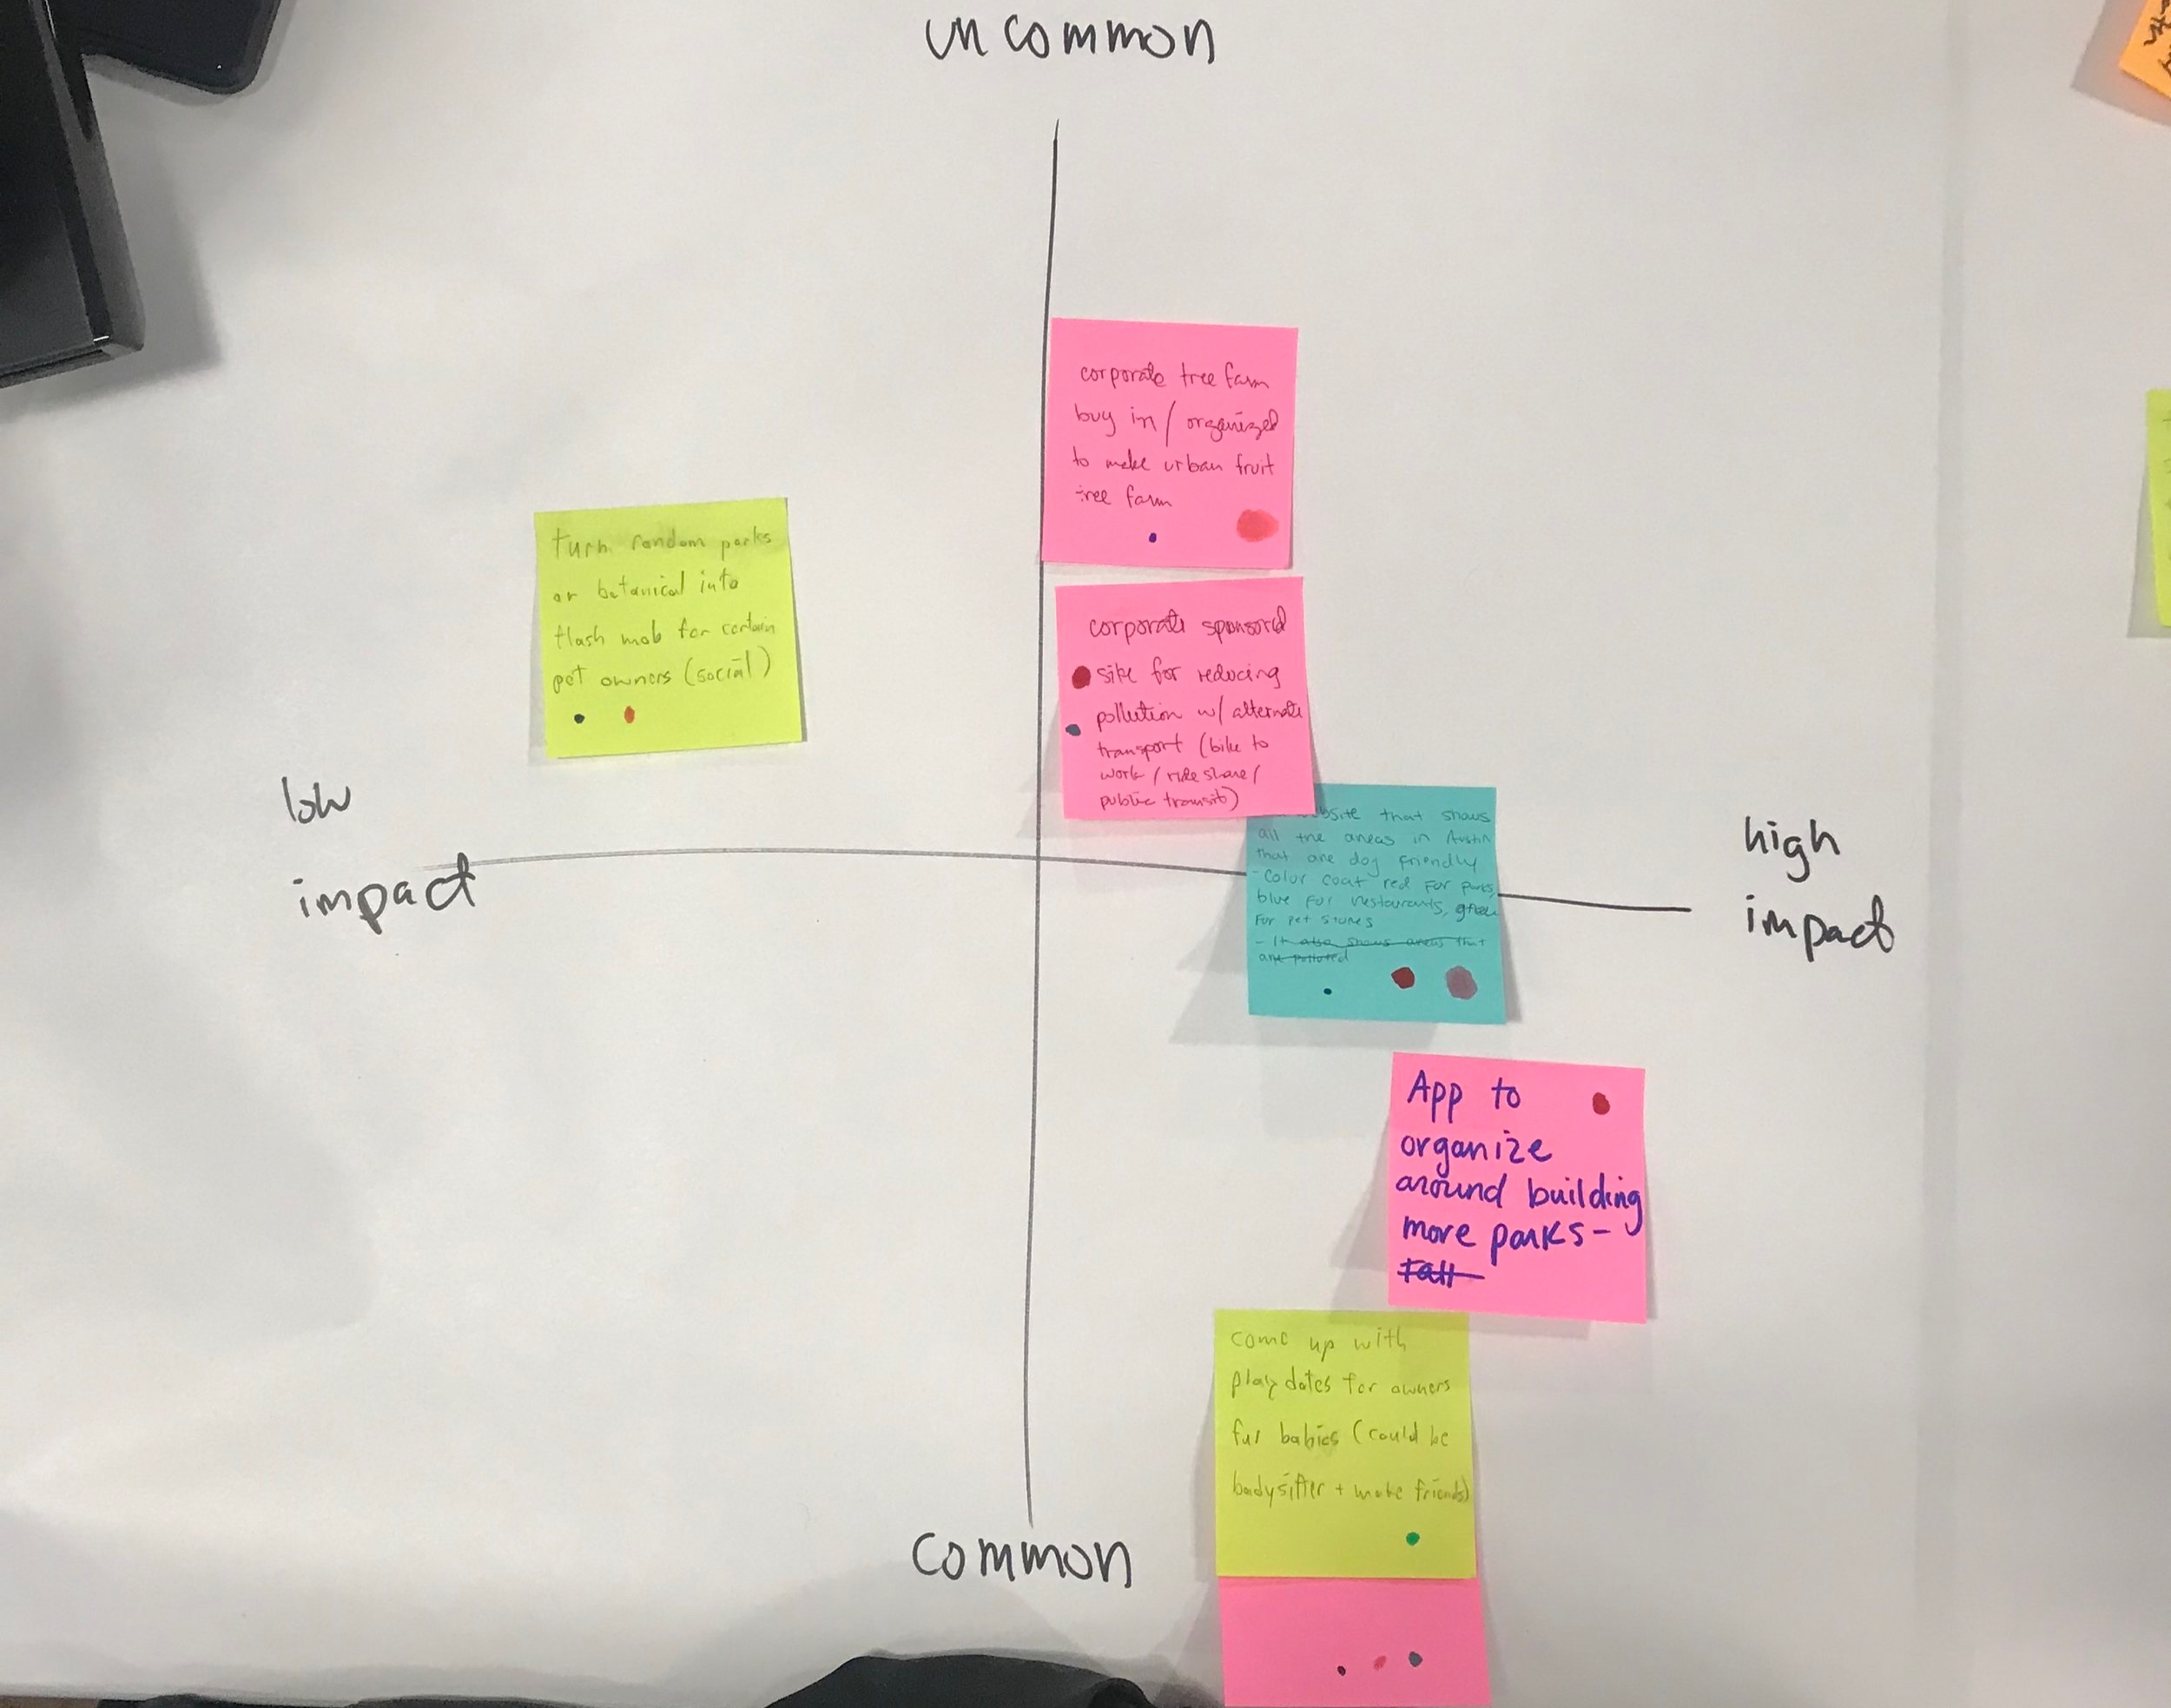 uncommon
corporate tree farm
buy in / organized
to make urban fruit
tree farm
turn random parks
or botanical into
flash mob for certain
pet owners (social)
corporate sponsored
site for reducing
pollution w/ alternate
transport (bike to
work / ride share /
public transit)
low
impact
high
impact
that shows
all the areas in Austin
that are dog friendly
- Color coat red for parks,
blue for restaurants, green
For pet stores
- It also shows areas that
are polluted
App to
organize
around building
more parks-
come up with
play dates for owners
fur babies (could be
badysitter + make friends)
common